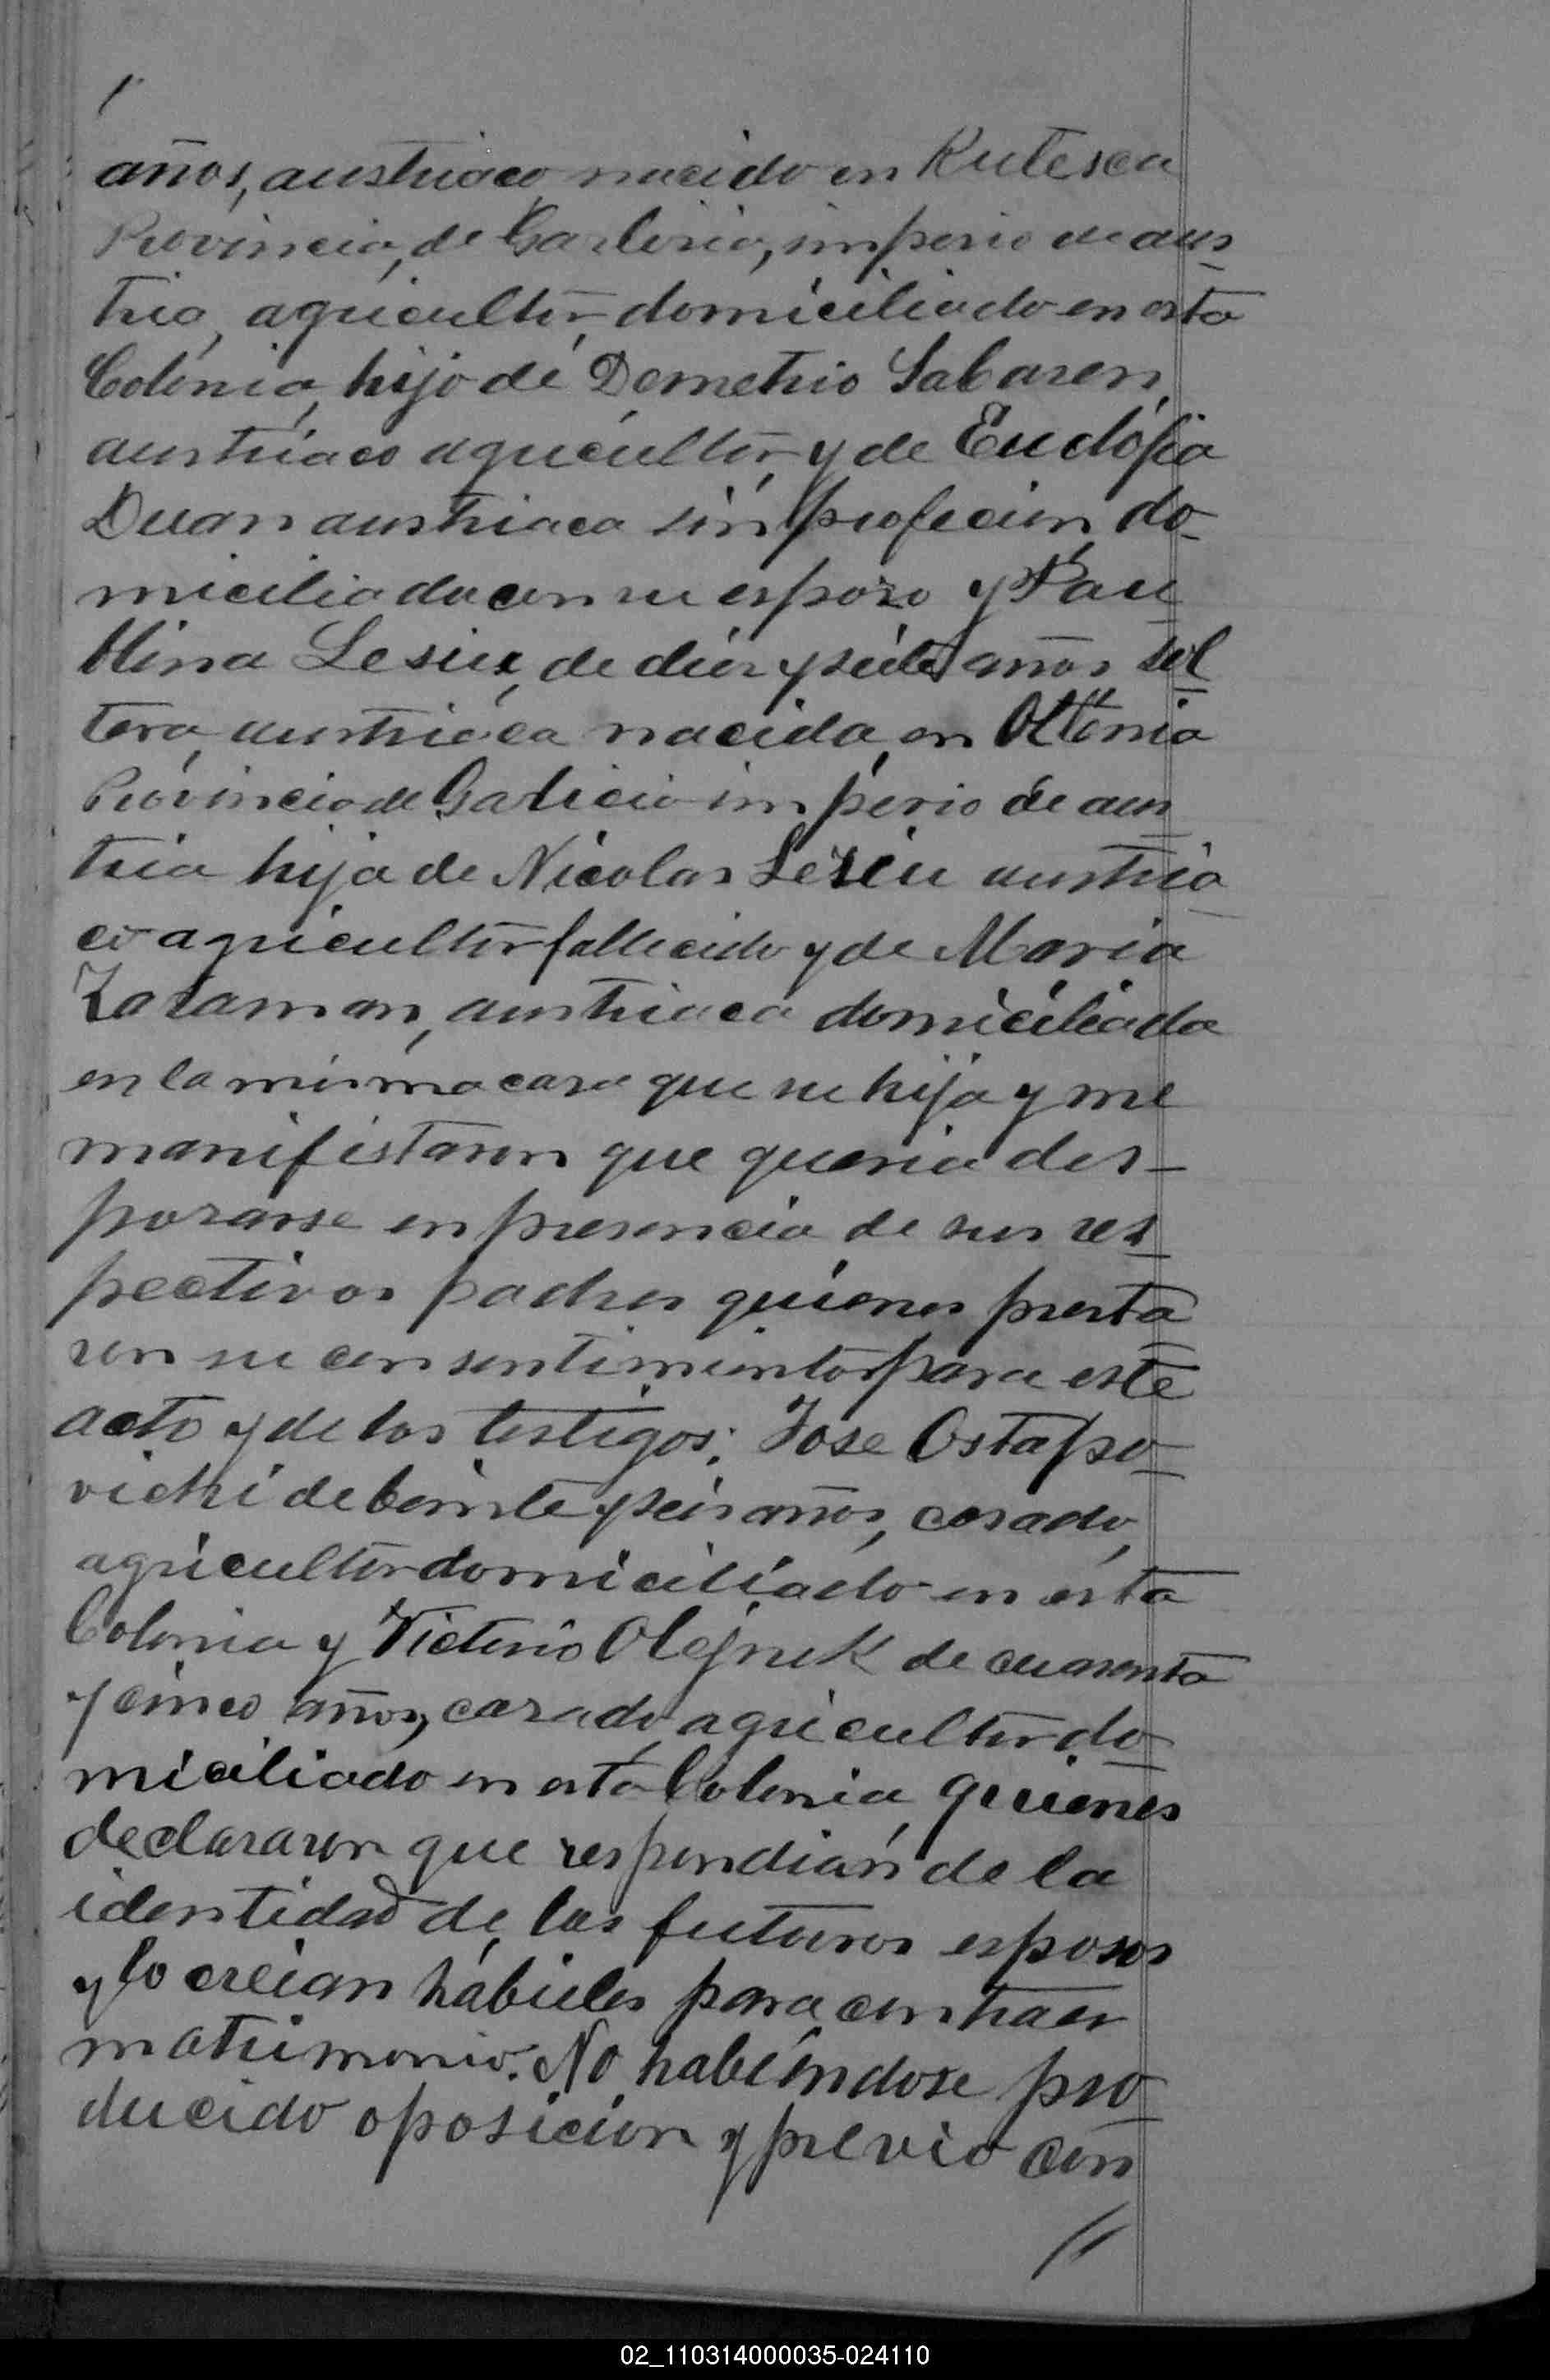 años, austriaco nacido en Rutesca
Provincia, de Galicia, imperio de aus
tria, agricultor domiciliado en esta
Colonia, hijo de Demetrio Sabaren,
austriaco agricultor y de Eudófia
Duan austriaca sin profecion, do-
miciliada con su esposo y Pau
lina Lesiu, de diez y siete años sol
tera, austriaca nacida, en Ottenia
Provincia de Galicia imperio de aus
tria hija de Nicolas Lesiu austria
co agricultor fallecido y de Maria
Zataman, austriaca domiciliada
en la misma casa que su hija y me
manifistaron que queria des-
posarse en presencia de sus res
pectivos padres quienes presta
ron su consentimiento para este
acto y de los testigos; Jose Ostapo-
vichi de beinte y seis años, casado,
agricultor domiciliado en esta
Colonia y Victorio Olejnik de cuarenta
y cinco años, casado, agricultor do-
miciliado en esta Colonia, quienes
declararon que respondian de la
identidad de los futuros esposos
y lo creian hábieles para contraer
matrimonio. No habiendose pro-
ducido oposicion y previo con
02_110314000035-024110